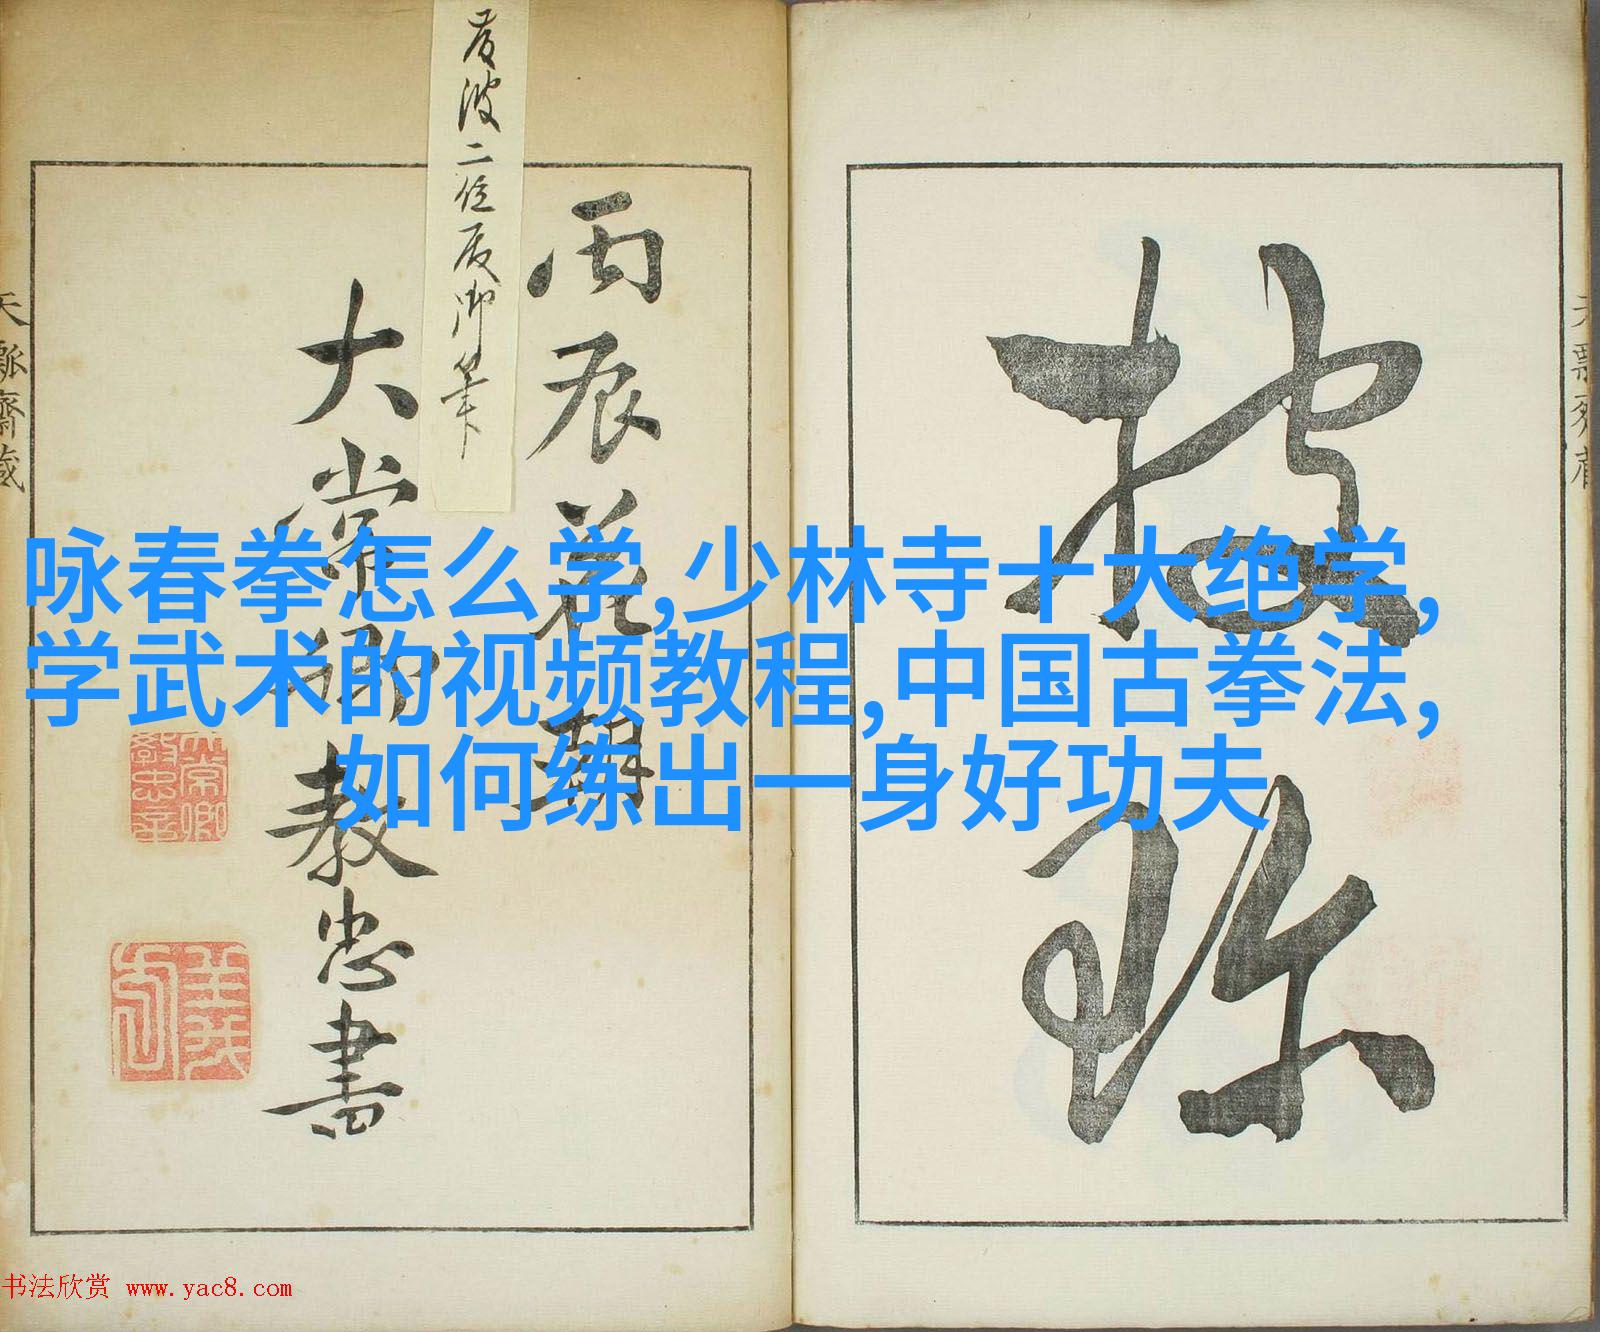 披
丙辰花朝
大常卿教忠書
天瓢齋蔵
咏春拳怎么学,少林寺十大绝学,
学武术的视频教程,中国古拳法,
如何练出一身好功夫
书法欣赏 www.yac8.com